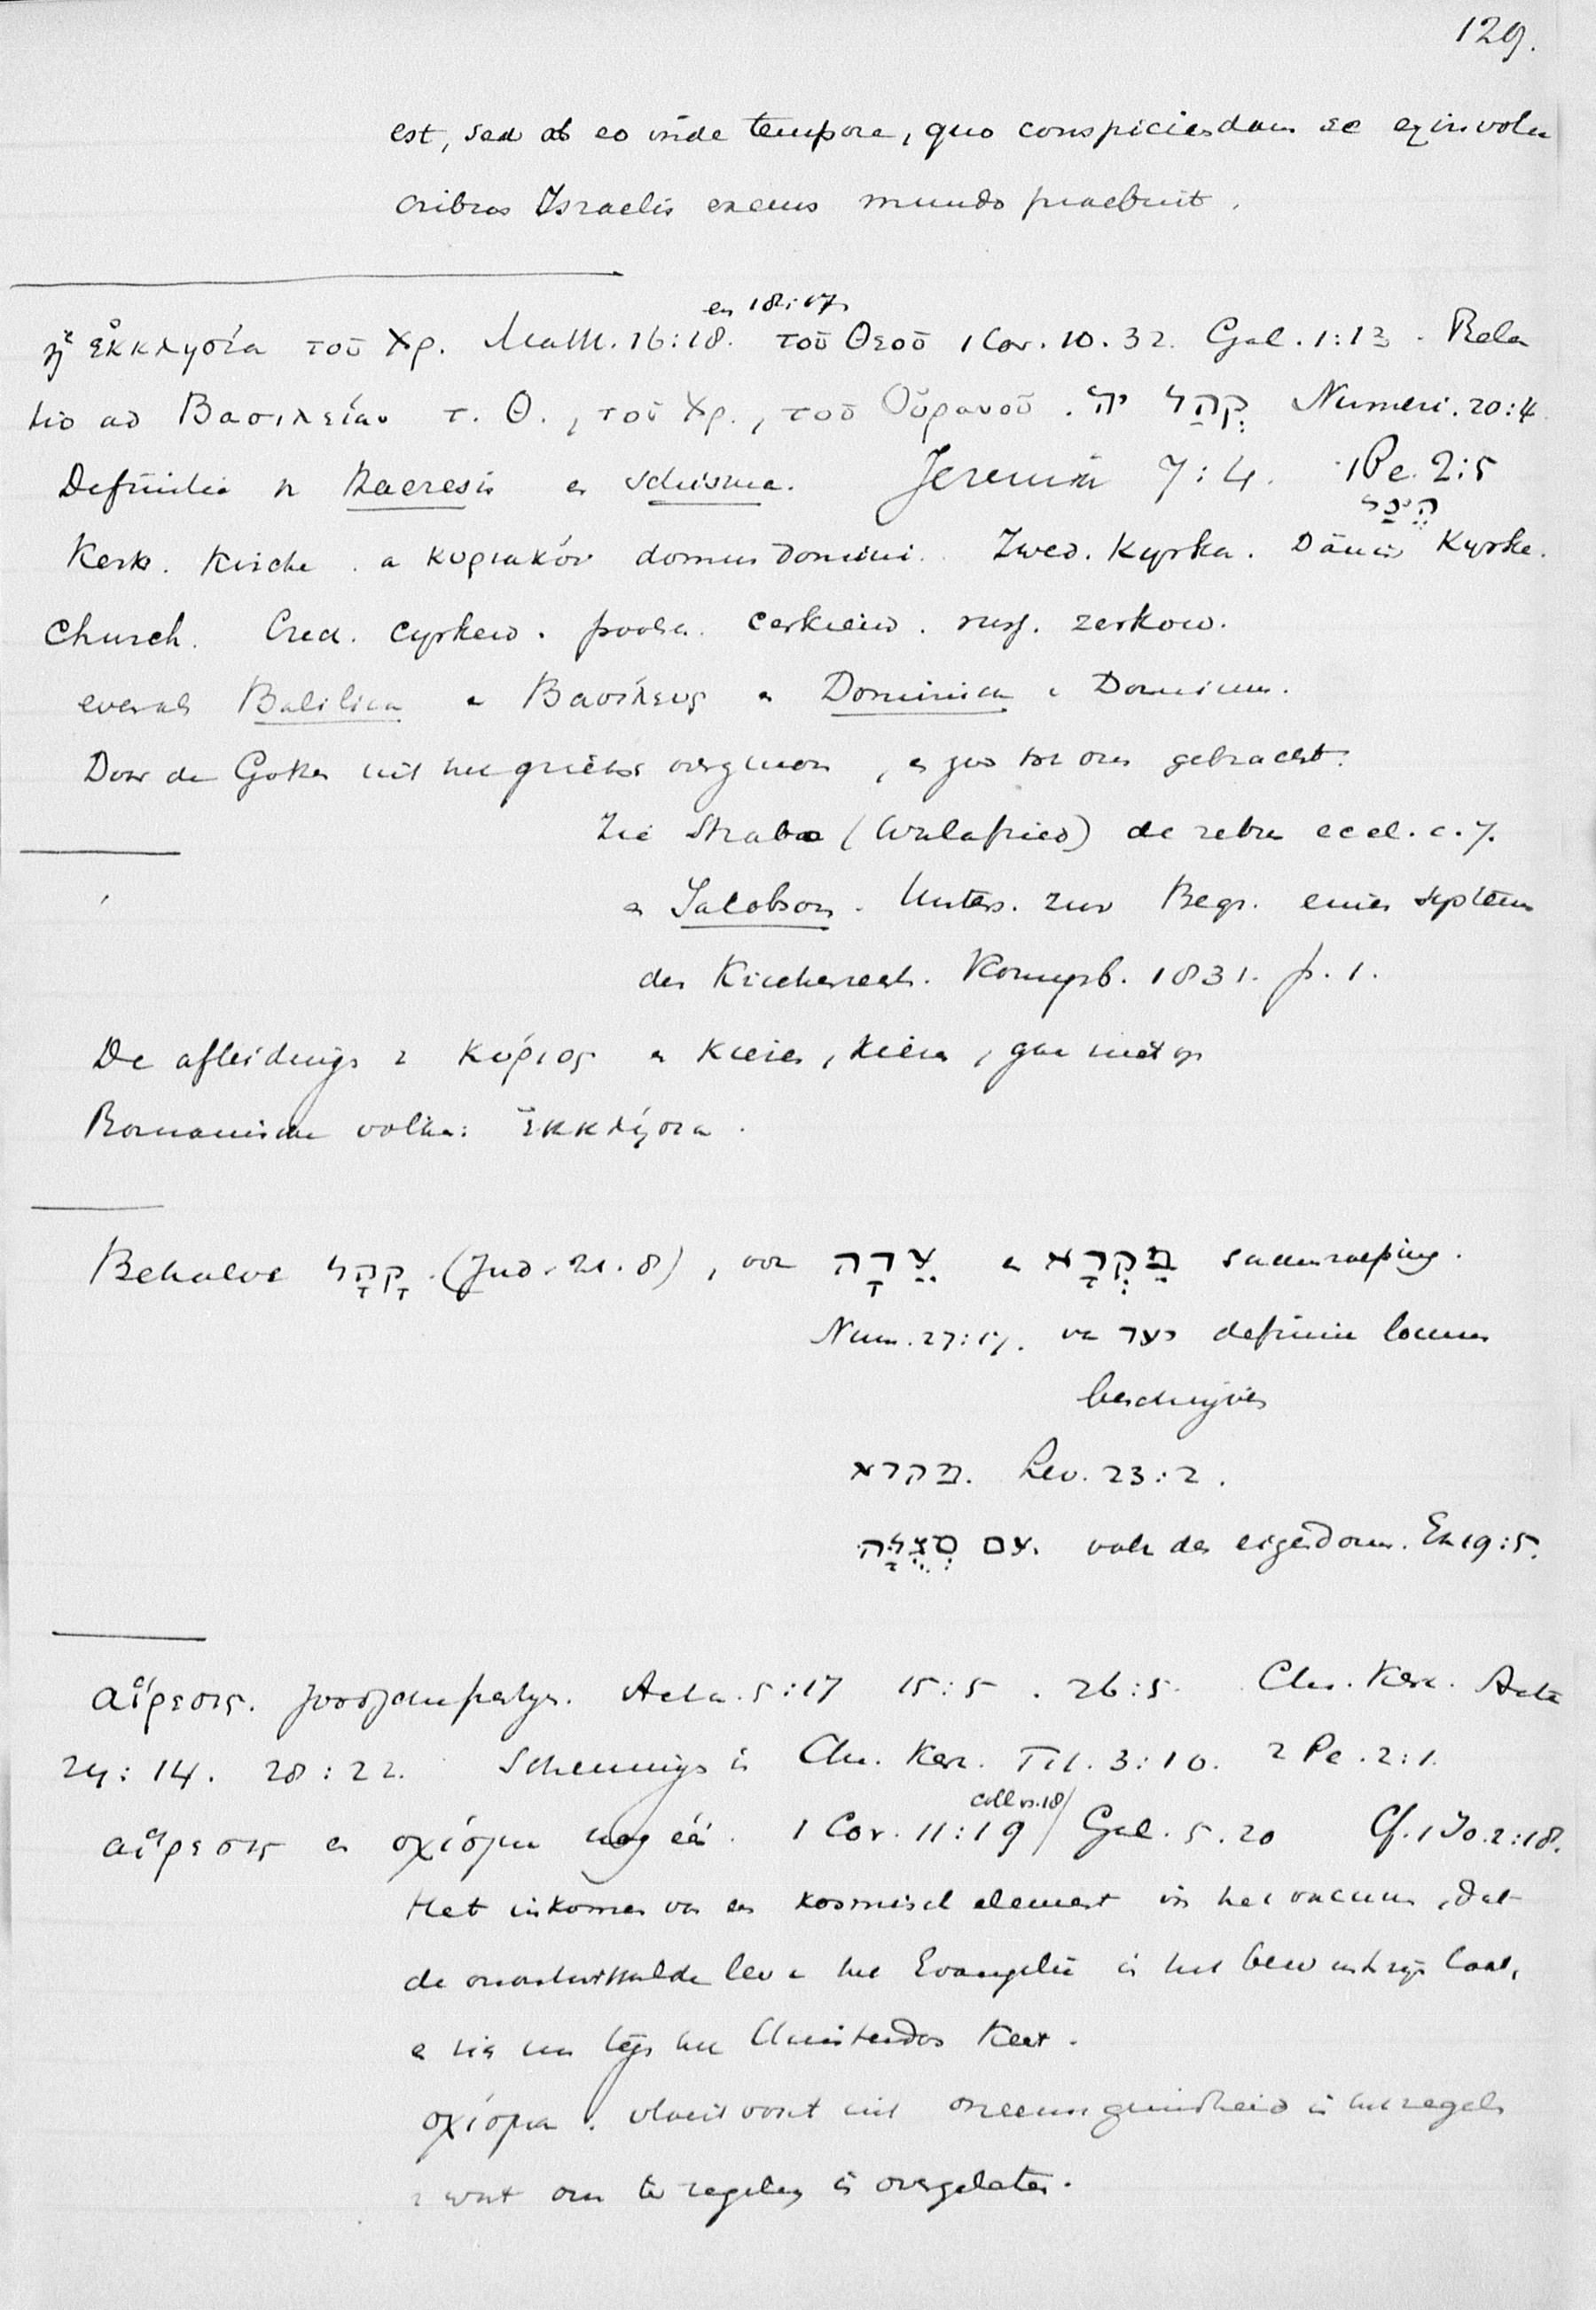 129.
est, sed ab eo inde tempore, quo conspiciendam se ex involu
cribus Israelis exeuns mundo praebuit.
en 18:17
ἡ ἐκκλησία τοῦ Χρ. Matth. 16:18. τοῦ Θεοῦ 1 Cor. 10.32. Gal. 1:13. Rela
tio ad Βασιλείαν τ. Θ., τοῦ Χρ., τοῦ Οὐρανοῦ. קְהַל יה' Numeri. 20:4
Definitie v. Haeresis en schisma. Jeremia 7:4. 1 Pe. 2:5
הֵיכַל
Kerk. Kirche. a κυριακόν domus Domini. Zwed. Kyrka. Dänis Kyrke.
Church. Cyrkew. poolsch. cerkiew. russ. zerkow.
evenals Basilica a Βασιλευς en Dominica a Dominus.
Door de Gothen uit het grieksch overgenomen, en zoo tot ons gebracht.
Zie Strabo (Walafried) de rebus eccl. c. 7.
en Jacobson. Unters. zur Begr. eines Systems
des Kirchenrech. Konigsb. 1831. p. 1.
De afleidings v κύριος a kieien, kieren, gaan niet op
Romanische volken: ἐκκλησια.
Behalve קָהָל (Jud. 21.8), ook עֵדָה en מִקְרָא samenroeping.
Num. 27:17. va יעד definire locum
beschrijven
מקרא. Lev. 23:2.
עם סְגֻלָּה. volk des eigendoms. Ex 19:5.
αἵρεσις. Acta. 5:17 15:5. 26:5. Chr. Kerk. Acta
24:14. 28:22. Scheurings in Chr. Kerk. Tit. 3:10. 2 Pe. 2:1.
coll vs. 18/
αἵρεσις en σχίσμα nog één. 1 Cor. 11:19/ Gal. 5.20 Cf. 1 Jo. 2:18.
Het inkomen van een kosmisch element in het vacuum, dat
de onontwikkelde leer v. het Evangelie in het bewustzijn laat,
en zich dan tegen het Christendom keert.
σχίσμα. vloeit voort uit oneensgezindheid in het regelen
v wat ons te regelen is overgelaten.